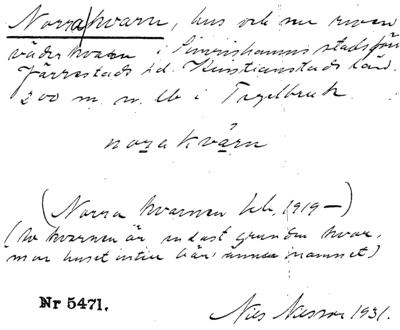 Norra kvarn, hus och nu riven
väderkvarn i Simrishamns stadsförs
Järrestads hd. Kristianstads län.
200 m. n. Ub i Tegelbruk
norakvärn
(Norra kvarnen kb. 1919—)
(Av kvarnen är endast grunden kvar,
men huset intill bär namnet)
Nr 5471.
Nils Nilsson 1931.